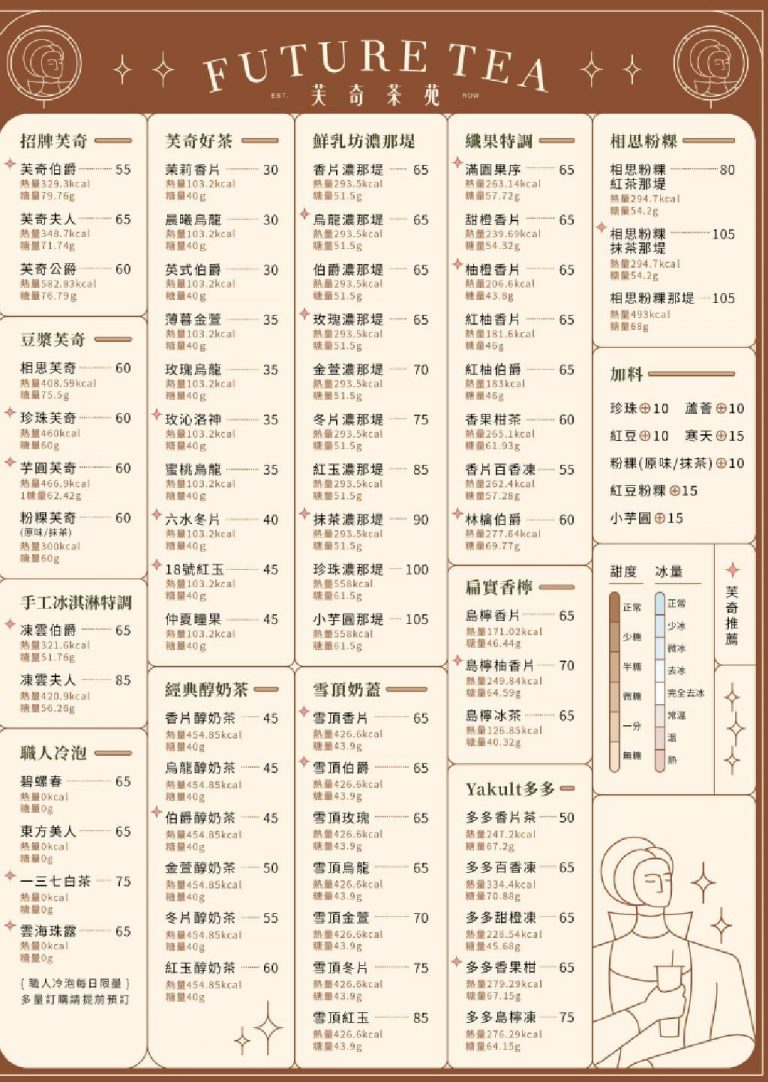 FUTURE TEA
EST. 芙奇茶苑 NOW
招牌芙奇
芙奇伯爵 55
熱量329.3kcal
糖量79.76g
芙奇夫人 65
熱量348.7kcal
糖量71.74g
芙奇公爵 60
熱量582.83kcal
糖量76.79g
豆漿芙奇
相思芙奇 60
熱量408.59kcal
糖量75.5g
珍珠芙奇 60
熱量460kcal
糖量60g
芋圓芙奇 60
熱量466.9kcal
1糖量62.42g
粉粿芙奇 60
(原味/抹茶)
熱量300kcal
糖量60g
手工冰淇淋特調
凍雲伯爵 65
熱量321.6kcal
糖量51.76g
凍雲夫人 85
熱量420.9kcal
糖量56.26g
職人冷泡
碧螺春 65
熱量0kcal
糖量0g
東方美人 65
熱量0kcal
糖量0g
一三七白茶 75
熱量0kcal
糖量0g
雲海珠露 65
熱量0kcal
糖量0g
{ 職人冷泡每日限量 }
多量訂購請提前預訂
芙奇好茶
茉莉香片 30
熱量103.2kcal
糖量40g
晨曦烏龍 30
熱量103.2kcal
糖量40g
英式伯爵 30
熱量103.2kcal
糖量40g
薄暮金萱 35
熱量103.2kcal
糖量40g
玫瑰烏龍 35
熱量103.2kcal
糖量40g
玫沁洛神 35
熱量103.2kcal
糖量40g
蜜桃烏龍 35
熱量103.2kcal
糖量40g
六水冬片 40
熱量103.2kcal
糖量40g
18號紅玉 45
熱量103.2kcal
糖量40g
仲夏瞳果 45
熱量103.2kcal
糖量40g
經典醇奶茶
香片醇奶茶 45
熱量454.85kcal
糖量40g
烏龍醇奶茶 45
熱量454.85kcal
糖量40g
伯爵醇奶茶 45
熱量454.85kcal
糖量40g
金萱醇奶茶 50
熱量454.85kcal
糖量40g
冬片醇奶茶 55
熱量454.85kcal
糖量40g
紅玉醇奶茶 60
熱量454.85kcal
糖量40g
鮮乳坊濃那堤
香片濃那堤 65
熱量293.5kcal
糖量51.5g
烏龍濃那堤 65
熱量293.5kcal
糖量51.5g
伯爵濃那堤 65
熱量293.5kcal
糖量51.5g
玫瑰濃那堤 65
熱量293.5kcal
糖量51.5g
金萱濃那堤 70
熱量293.5kcal
糖量51.5g
冬片濃那堤 75
熱量293.5kcal
糖量51.5g
紅玉濃那堤 85
熱量293.5kcal
糖量51.5g
抹茶濃那堤 90
熱量293.5kcal
糖量51.5g
珍珠濃那堤 100
熱量558kcal
糖量61.5g
小芋圓那堤 105
熱量558kcal
糖量61.5g
雪頂奶蓋
雪頂香片 65
熱量426.6kcal
糖量43.9g
雪頂伯爵 65
熱量426.6kcal
糖量43.9g
雪頂玫瑰 65
熱量426.6kcal
糖量43.9g
雪頂烏龍 65
熱量426.6kcal
糖量43.9g
雪頂金萱 70
熱量426.6kcal
糖量43.9g
雪頂冬片 75
熱量426.6kcal
糖量43.9g
雪頂紅玉 85
熱量426.6kcal
糖量43.9g
纖果特調
滿園果序 65
熱量263.14kcal
糖量57.72g
甜橙香片 65
熱量239.69kcal
糖量54.32g
柚橙香片 65
熱量206.6kcal
糖量43.8g
紅柚香片 65
熱量181.6kcal
糖量46g
紅柚伯爵 65
熱量183kcal
糖量46g
香果柑茶 60
熱量265.1kcal
糖量61.93g
香片百香凍 55
熱量262.4kcal
糖量57.28g
林檎伯爵 60
熱量277.64kcal
糖量69.77g
扁實香檸
島檸香片 65
熱量171.02kcal
糖量46.44g
島檸柚香片 70
熱量249.84kcal
糖量64.59g
島檸冰茶 65
熱量126.85kcal
糖量40.32g
Yakult多多
多多香片茶 50
熱量247.2kcal
糖量67.2g
多多百香凍 65
熱量334.4kcal
糖量70.88g
多多甜橙凍 65
熱量228.54kcal
糖量45.68g
多多香果柑 65
熱量279.29kcal
糖量67.15g
多多島檸凍 75
熱量276.29kcal
糖量64.15g
相思粉粿
相思粉粿 80
紅茶那堤
熱量294.7kcal
糖量54.2g
相思粉粿 105
抹茶那堤
熱量294.7kcal
糖量54.2g
相思粉粿那堤 105
熱量493kcal
糖量68g
加料
珍珠⊕10 蘆薈⊕10
紅豆⊕10 寒天⊕15
粉粿(原味/抹茶)⊕10
紅豆粉粿⊕15
小芋圓⊕15
甜度
正常
少糖
半糖
微糖
一分
無糖
冰量
正常
少冰
微冰
去冰
完全去冰
常溫
溫
熱
芙奇推薦